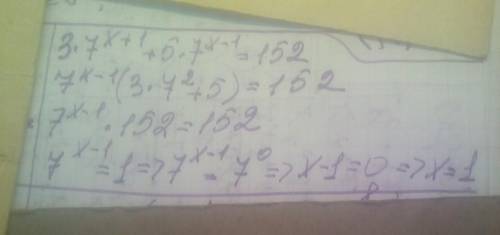 3·7^(x+1) + 5·7^(x-1) = 152
7^(x-1)(3·7^2+5) = 152
7^(x-1)·152 = 152
7^(x-1) = 1 => 7^(x-1) = 7^0 => x-1=0 => x=1